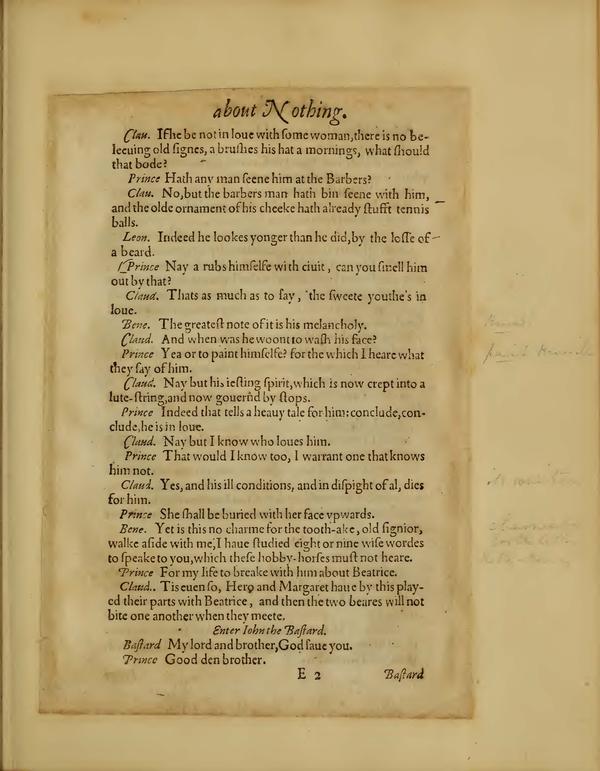 about Nothing.
Clau. If he be not in loue with some woman, there is no be-
leeuing old signes, a brushes his hat a mornings, what should
that bode?
Prince Hath any man seene him at the Barbers?
Clau. No, but the barbers man hath bin seene with him,
and the olde ornament of his cheeke hath already stufft tennis
balls.
Leon. Indeed he lookes yonger than he did, by the losse of
a beard.
Prince Nay a rubs himselfe with ciuit, can you smell him
out by that?
Claud. Thats as much as to say, the sweete youthe's in
loue.
Bene. The greatest note of it is his melancholy.
Claud. And when was he woont to wash his face?
Prince Yea or to paint himselfe? for the which I heare what
they say of him.
Claud. Nay but his iesting spirit, which is now crept into a
lute-string, and now gouernd by stops.
Prince Indeed that tells a heauy tale for him: conclude, con-
clude, he is in loue.
Claud. Nay but I know who loues him.
Prince That would I know too, I warrant one that knows
him not.
Claud. Yes, and his ill conditions, and in dispight of al, dies
for him.
Prince She shall be buried with her face vpwards.
Bene. Yet is this no charme for the tooth-ake, old signior,
walke aside with me, I haue studied eight or nine wise wordes
to speake to you, which these hobby-horses must not heare.
Prince For my life to breake with him about Beatrice.
Claud.. Tis euen so, Hero and Margaret haue by this play-
ed their parts with Beatrice, and then the two beares will not
bite one another when they meete.
Enter Iohn the Bastard.
Bastard My lord and brother, God saue you.
Prince Good den brother.
E 2 Bastard